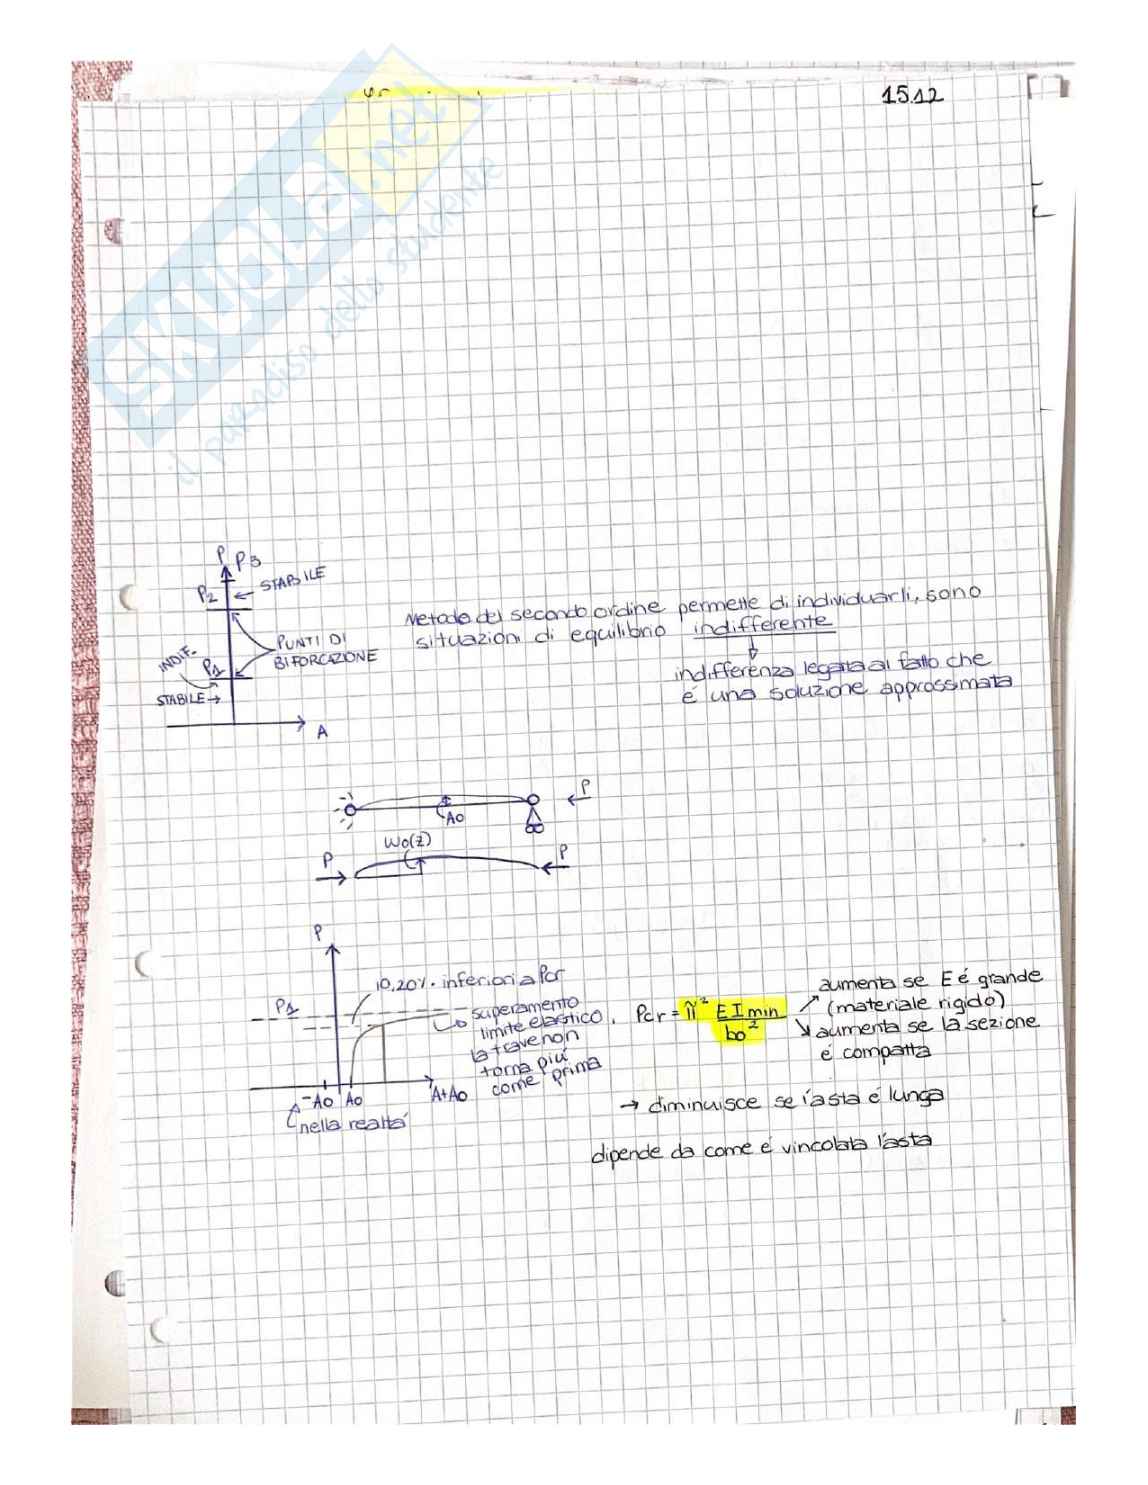 15.12
SKUOLA.net
il paradiso dello studente
P P3
P2 ← STABILE
PUNTI DI
BIFORCAZIONE
INDIF. P1
STABILE →
A
Metodo del secondo ordine permette di individuarli, sono
situazioni di equilibrio indifferente
indifferenza legata al fatto che
é una soluzione approssimata
P
A0
W0(z)
P P
P
10,20% inferiori a Pcr
P1
superamento
limite elastico,
la trave non
torna piú
come prima
-A0 A0 A+A0
nella realtá
Pcr = π² E I min / b0²
aumenta se E é grande
(materiale rigido)
aumenta se la sezione
é compatta
→ diminuisce se l'asta é lunga
dipende da come é vincolata l'asta